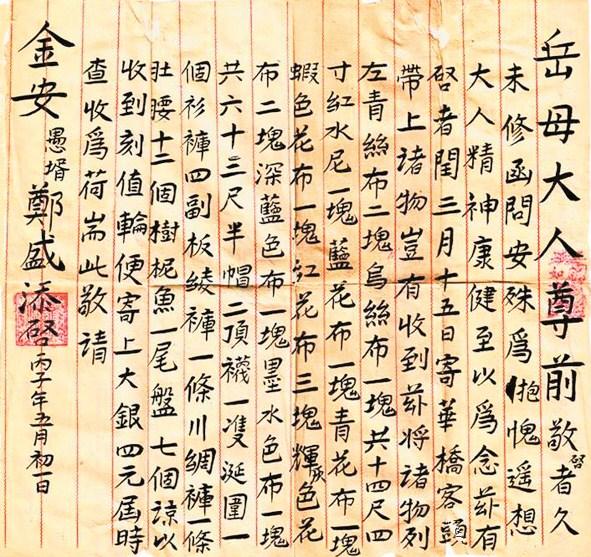 岳母大人尊前敬啓者久
未修函問安殊爲抱愧遥想
大人精神康健至以爲念茲有
啓者閏三月十五日寄華橋客頭
帶上諸物豈有收到茲將諸物列
左青絲布二塊烏絲布一塊共十四尺四
寸紅水尼一塊藍花布一塊青花布一塊
蝦色花布一塊紅花布三塊輝灰色花
布二塊深藍色布一塊墨水色布一塊
共六十三尺半帽二頂襪一隻涎圍一
個衫褲四副板綾褲一條川綢褲一條
肚腰十二個樹柅魚一尾盤七個諒以
收到刻值輪便寄上大銀四元屆時
查收爲荷耑此敬請
金安 愚壻鄭盛添啓 丙子年五月初一日